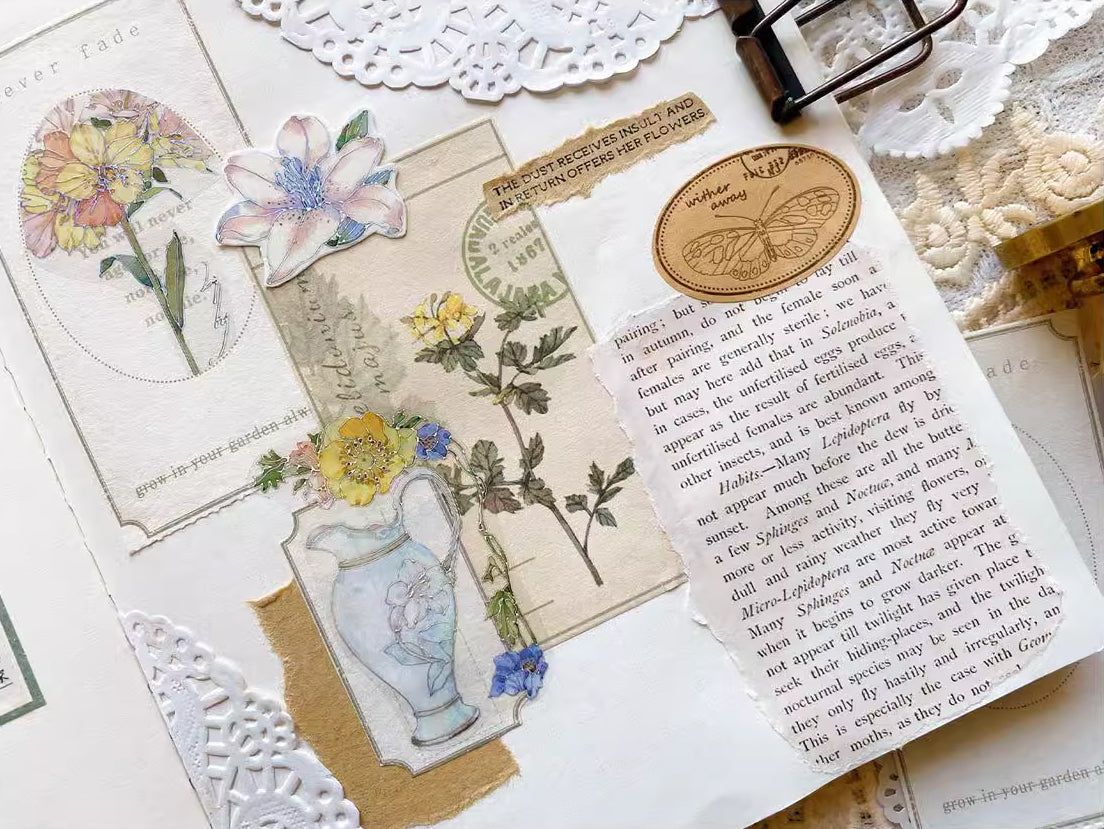 ever fade
You will never
again
grow in your garden alw
2 reales
1867
THE DUST RECEIVES INSULT AND
IN RETURN OFFERS HER FLOWERS.
wither
away
pairing; but
till
in autumn, do not
after pairing, and the female soon a
females are generally sterile; we have
but may here add that in Solenobia,
in cases, the unfertilised eggs produce
appear as the result of fertilised eggs,
unfertilised females are abundant. This
other insects, and is best known among
Habits.—Many Lepidoptera fly by
not appear much before the dew is drie
sunset. Among these are all the butte
a few Sphinges and Noctuæ, and many
more or less activity, visiting flowers, o
dull and rainy weather they fly very
Micro-Lepidoptera are most active towar
Many Sphinges and Noctuæ appear at
when it begins to grow darker. The g
not appear till twilight has given place t
seek their hiding-places, and the twiligh
nocturnal species may be seen in the da
they only fly hastily and irregularly, an
This is especially the case with Geom
her moths, as they do not
ade
grow in your garden al